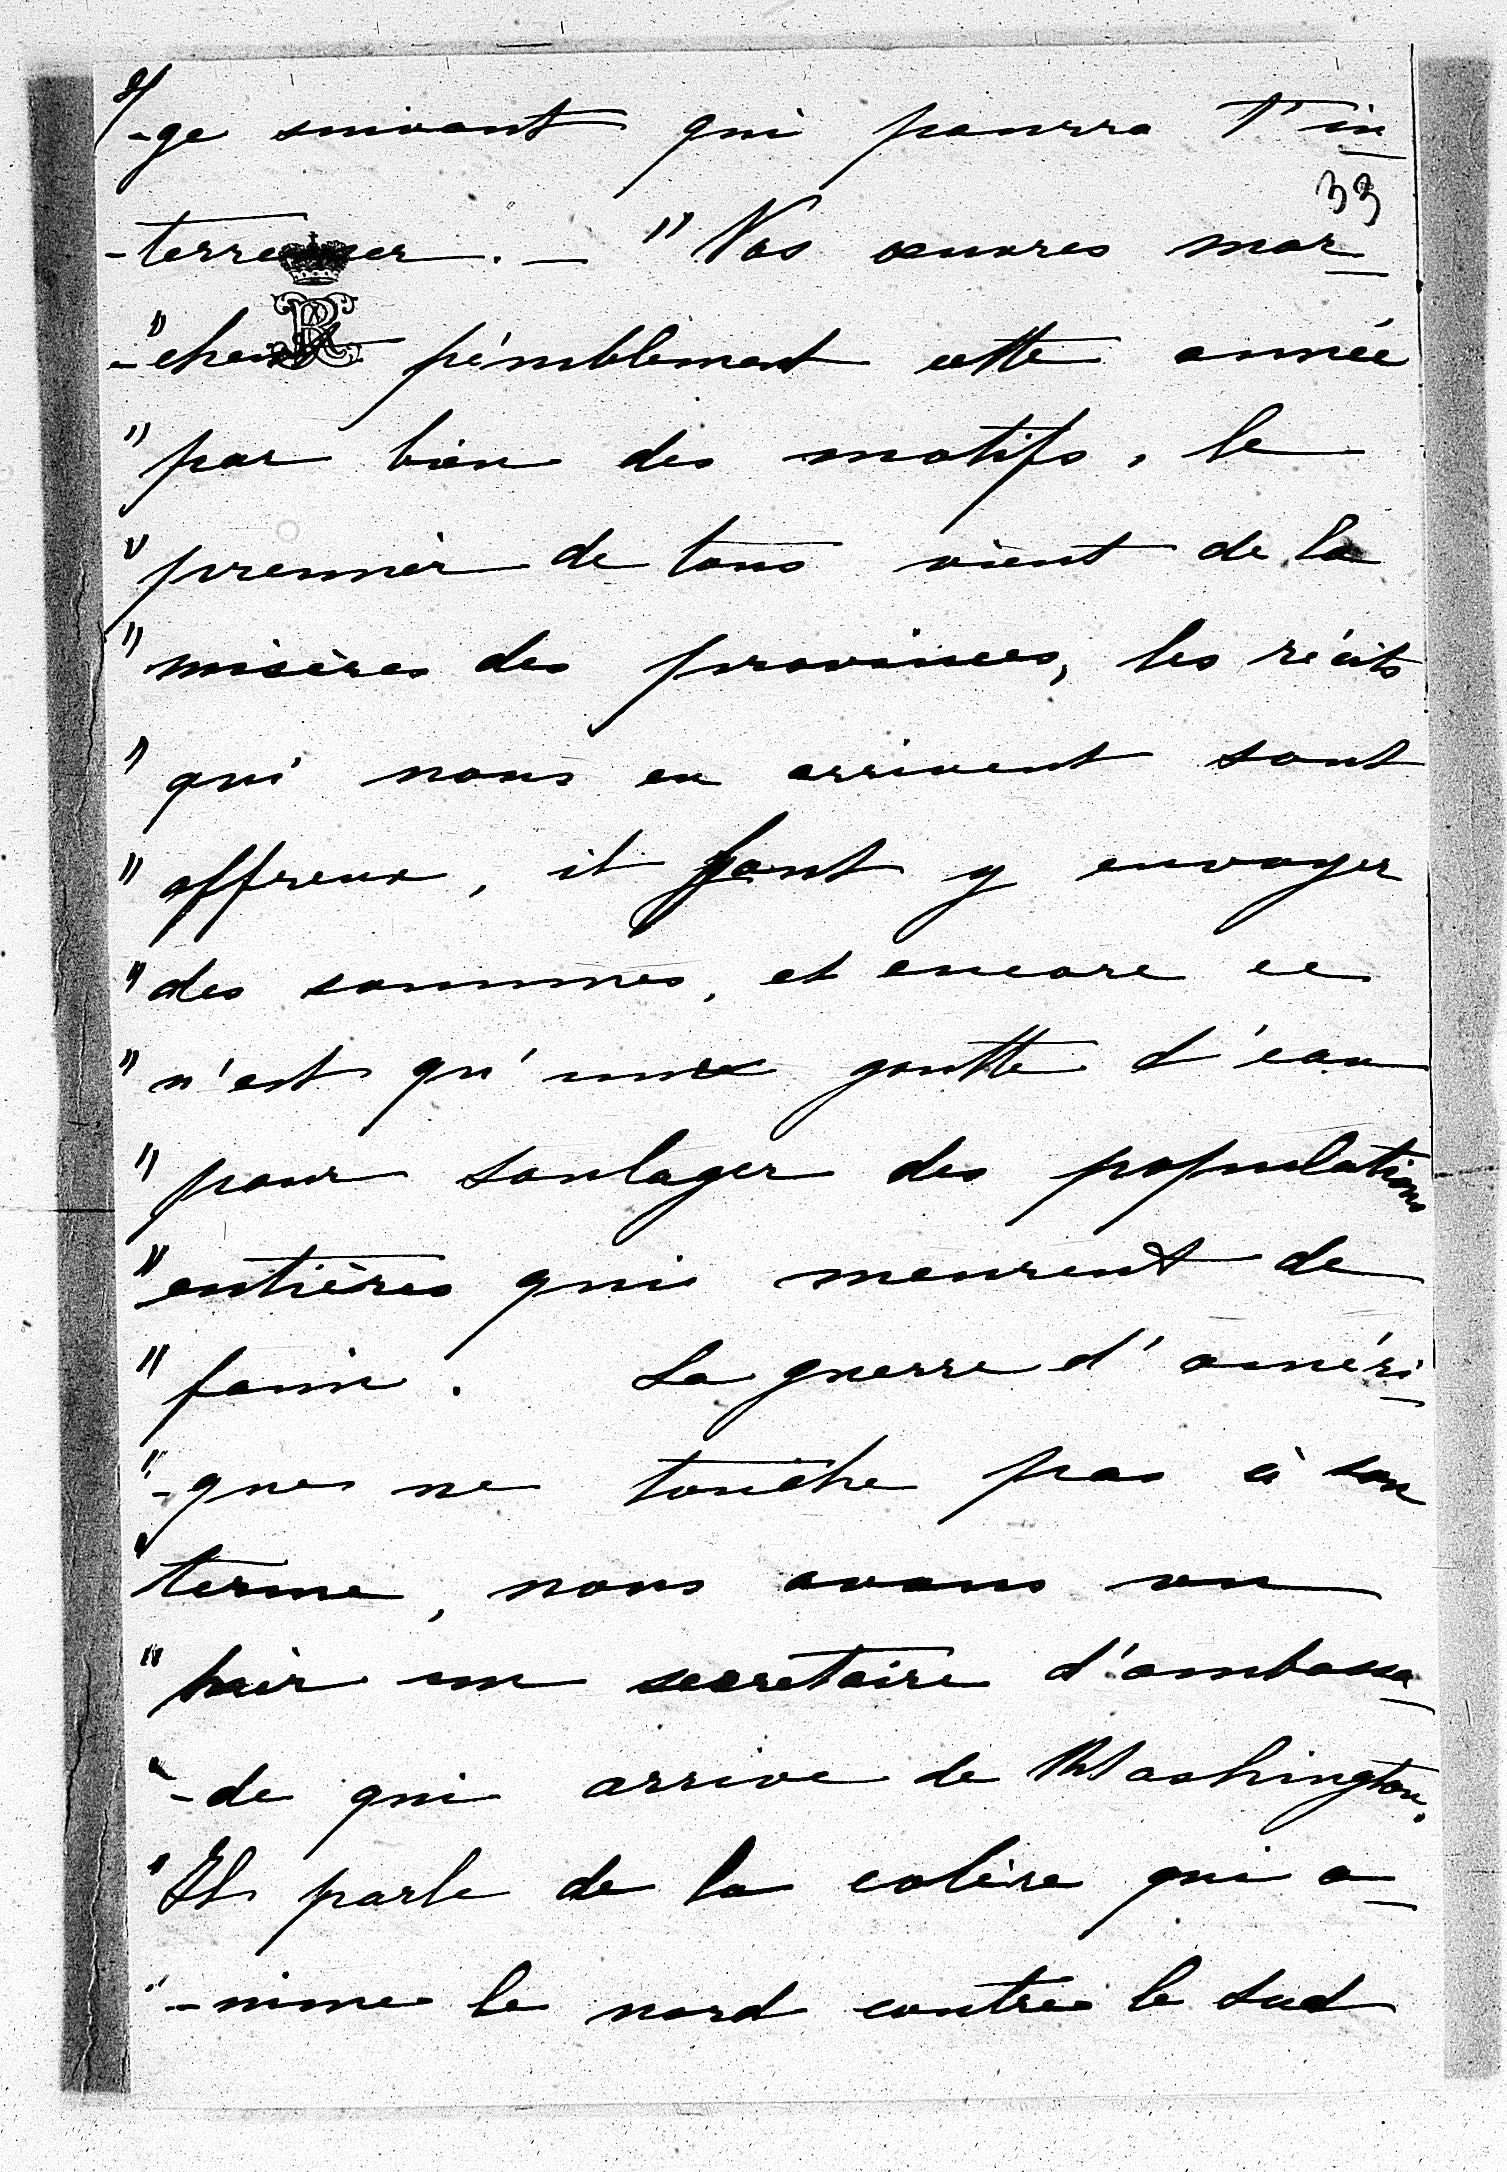 8/
-ge suivant qui pourra t'in
33
-terresser. — "Vos œuvres mar-
-"chent péniblement cette année
"par bien des motifs, le
"premier de tous vient de la
"misères des provinces, les récits
"qui nous en arrivent sont
"affreux, il faut y envoyer
"des sommes, et encore ce
"n'est qu'une goutte d'eau
"pour soulager des populations
"entières qui meurent de
"faim. La guerre d'améri-
"-que ne touche pas à son
"terme, nous avons vu
"hier un secretaire d'ambassa-
"-de qui arrive de Washington.
"Il parle de la colère qui a-
"-nime le nord contre le sud